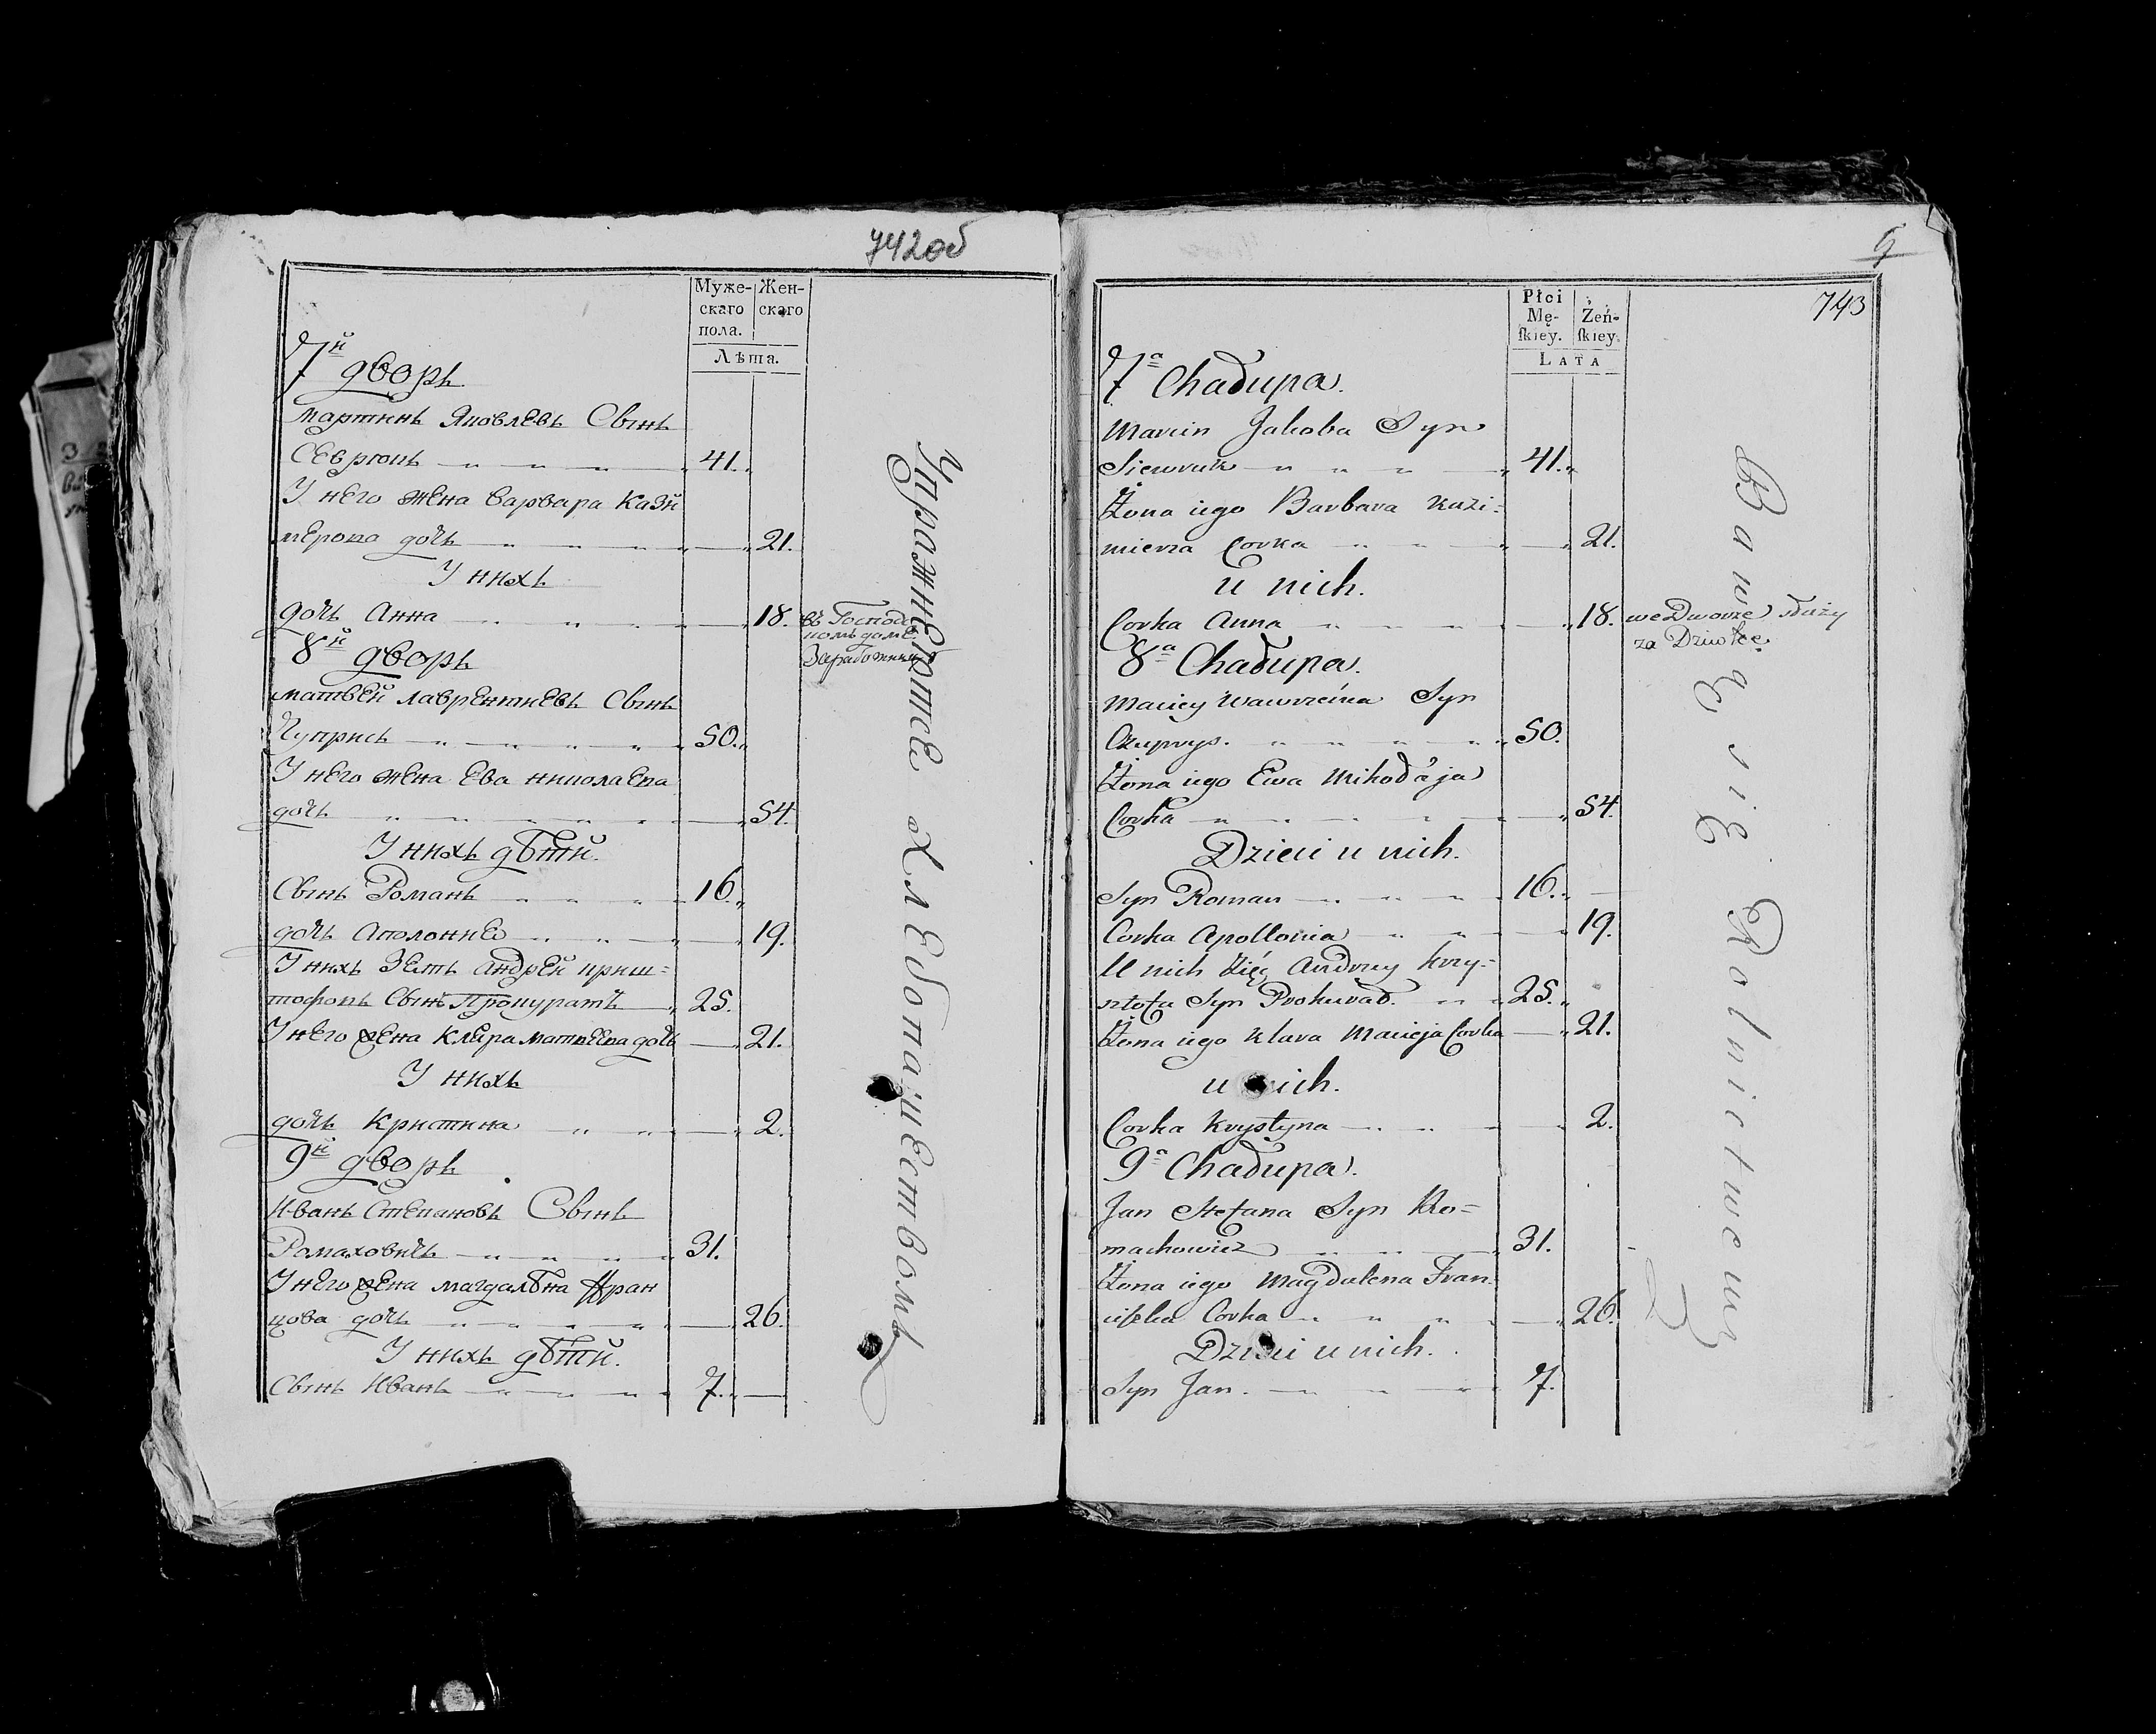 742об
Муже-
скаго
пола.
Жен-
скаго
Лѣта.
7й дворъ
Мартинъ Яковлевъ Сынъ
Севрюкъ 41.
У него жена Варвара Кази
мерова дочь 21.
У нихъ
дочь Анна 18. въ Господс
комъ домѣ
8й дворъ
Матвей Лаврентиевъ Сынъ
Чуприсъ 50.
У него жена Ева Николаева
дочь 54.
У нихъ дѣти.
Сынъ Романъ 16.
дочь Аполония 19.
У нихъ Зять Андрей Криш=
тофовъ Сынъ Прокуратъ 25.
У него жена Клара Матвеева дочь 21.
У нихъ
дочь Кристина 2.
9й дворъ
Иванъ Степановъ Сынъ
Ромаховичъ 31.
У него жена Магдалѣна Фран
цова дочь 26.
У нихъ дѣти.
Сынъ Иванъ 7.
Упражняются Хлебопашествомъ
9
743
Płci
Mę-
skiey.
Żeń-
skiey.
LATA
7a Chałupa.
Marcin Jakoba Syn
Siewruk 41.
Żona iego Barbara Kazi=
mierza Corka 21.
u nich.
Corka Anna 18. we Dworze służy
za Dziwkę
8a Chałupa.
Maciey Wawrzeńca Syn
Czuprys. 50.
Żona iego Ewa Mikołaja
Corka 54.
Dzieci u nich.
Syn Roman 16.
Corka Apollonia 19.
U nich Zięć Andrzey Krzy=
sztofa Syn Prokurad. 25.
Żona iego Klara Macieja Corka 21.
u nich.
Corka Krystyna 2.
9a Chałupa.
Jan Stefana Syn Ro=
machowicz 31.
Żona iego Magdalena Fran=
ciszka Corka 26.
Dzieci u nich.
Syn Jan. 7.
Bawią się Rolnictwem